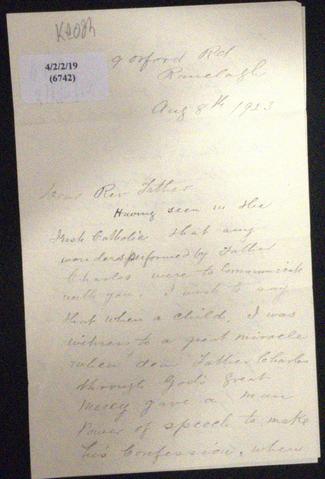 Keogh
4/2/2/19
(6742)
9 Oxford Rd
Ranelagh
Aug 8th 1923
Dear Rev Father
Having seen in the
Irish Catholic that any
wonders performed by Father
Charles were to communicate
with you, I wish to say
that when a child, I was
witness to a great miracle
when dear Father Charles
through God's great
Mercy gave a man
Power of speech to make
his Confession, when